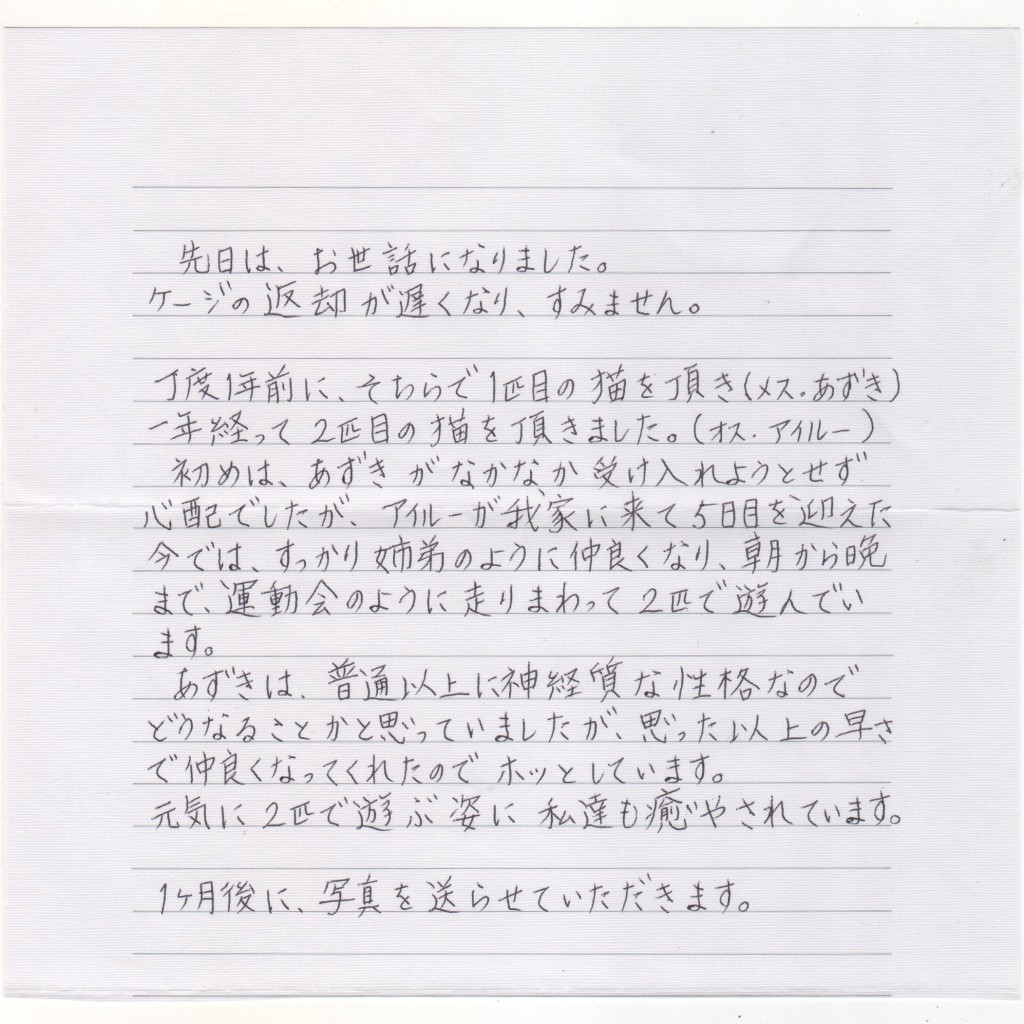 先日は、お世話になりました。
ケージの返却が遅くなり、すみません。
丁度1年前に、そちらで1匹目の猫を頂き(メス・あずき)
一年経って2匹目の猫を頂きました。(オス・アイルー)
初めは、あずきがなかなか受け入れようとせず
心配でしたが、アイルーが我家に来て5日目を迎えた
今では、すっかり姉弟のように仲良くなり、朝から晩
まで、運動会のように走りまわって2匹で遊んでい
ます。
あずきは、普通以上に神経質な性格なので
どうなることかと思っていましたが、思った以上の早さ
で仲良くなってくれたのでホッとしています。
元気に2匹で遊ぶ姿に私達も癒やされています。
1ヶ月後に、写真を送らせていただきます。